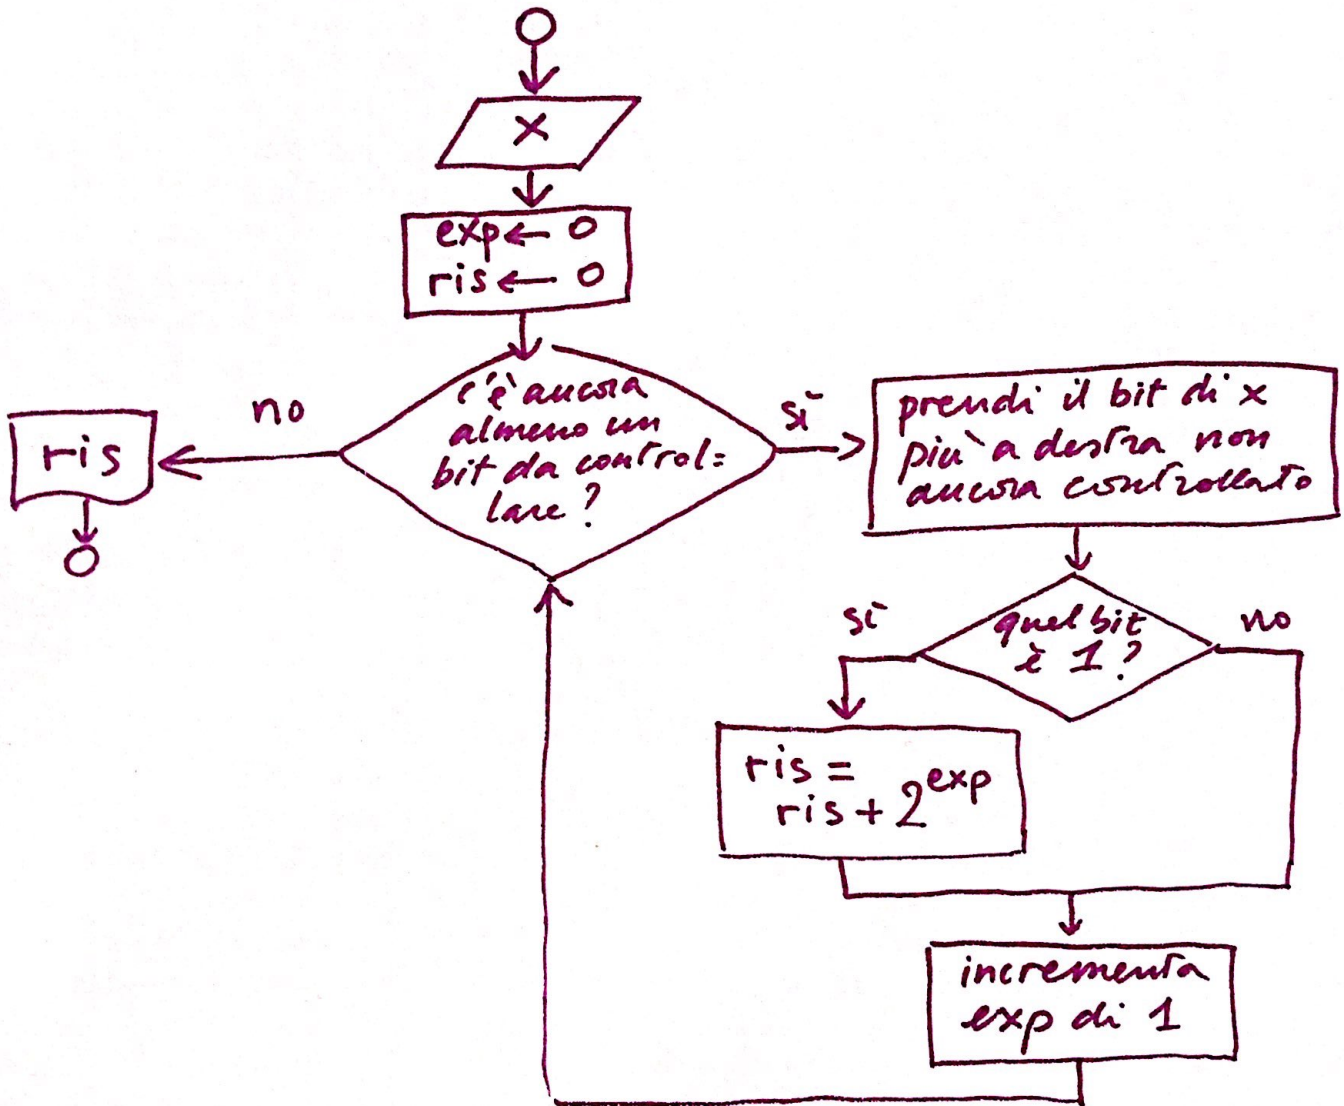 x
exp ← 0
ris ← 0
c'è ancora
almeno un
bit da control=
lare?
no
ris
sì
prendi il bit di x
più a destra non
ancora controllato
quel bit
è 1?
sì
no
ris =
ris + 2^exp
incrementa
exp di 1